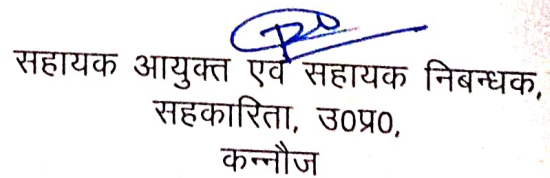 सहायक आयुक्त एवं सहायक निबन्धक,
सहकारिता, उ0प्र0,
कन्नौज